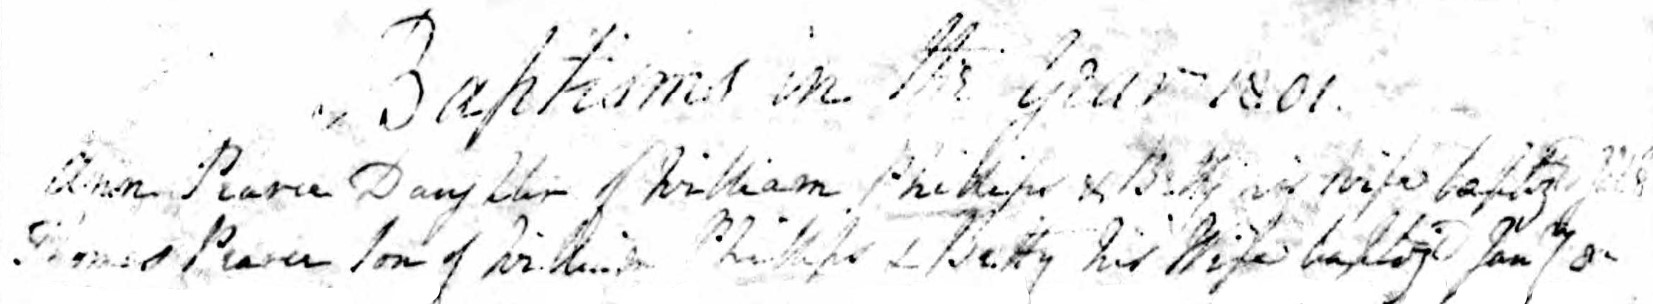 Baptisms in the Year 1801.
Ann Pearce Daughter of William Phillips & Betty his Wife baptizd
Thomas Pearce Son of William Phillips & Betty his Wife baptizd Jany 8